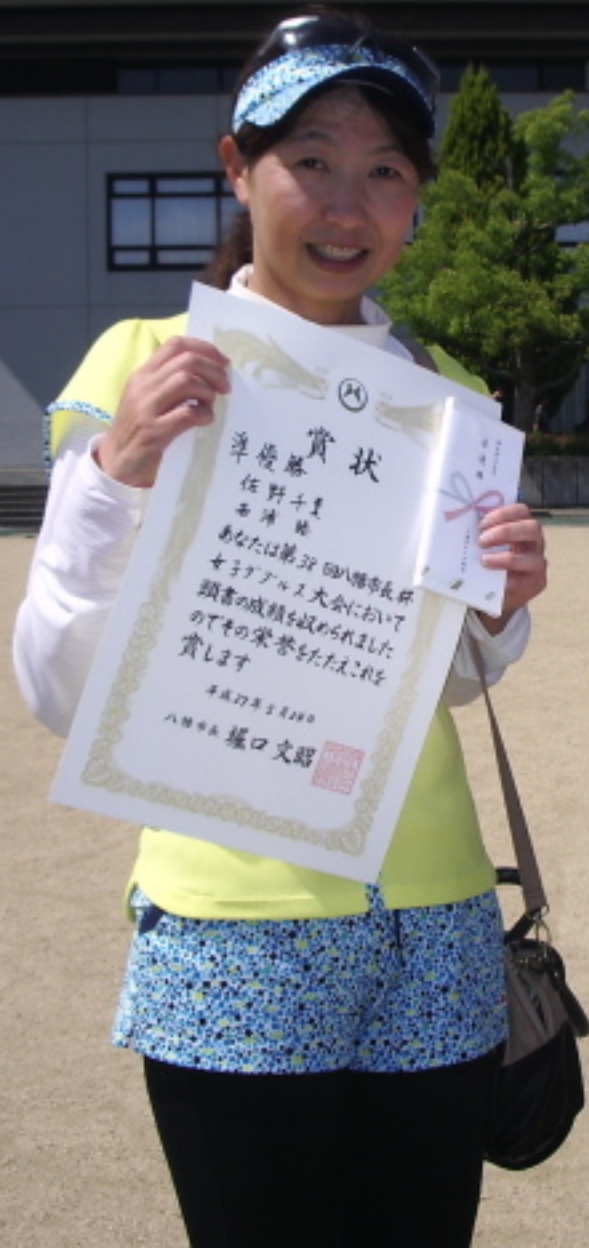 賞状
準優勝
佐野千夏
西沛 睦
あなたは第38回八幡市長杯
女子ダブルス大会において
頭書の成績を収められました
のでその栄誉をたたえこれを
賞します
平成27年5月28日
八幡市長 堀口文昭
準優勝